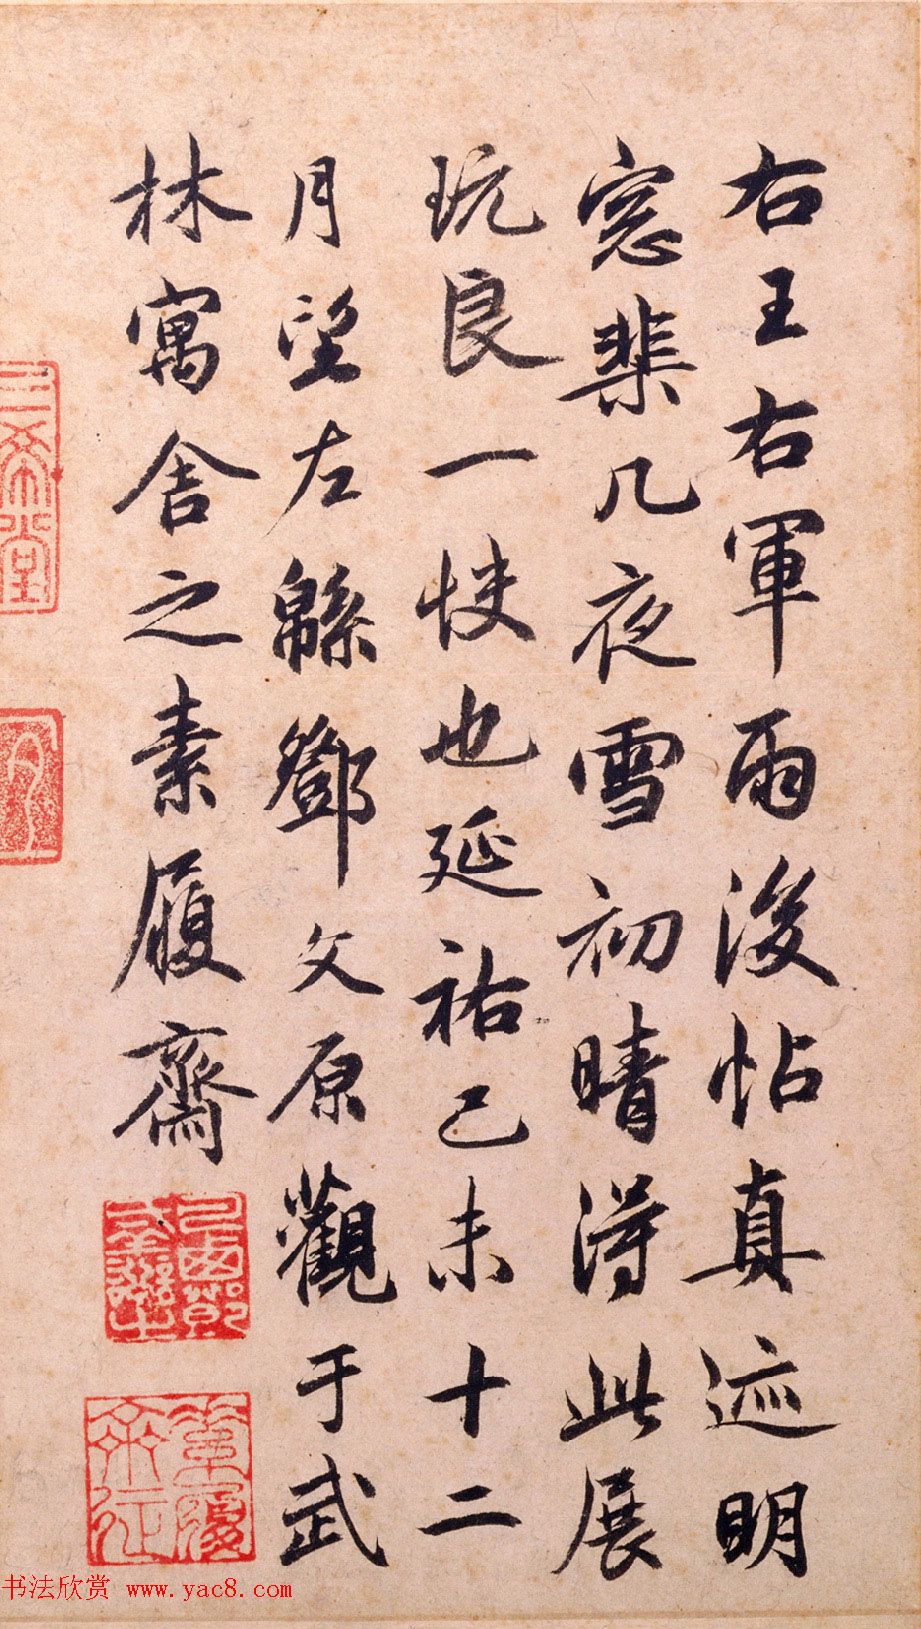 右王右軍雨後帖真迹明
窓棐几夜雪初晴得此展
玩良一快也延祐己未十二
月望左緜鄧文原觀于武
林寓舍之素履齋
三希堂
書法欣賞 www.yac8.com